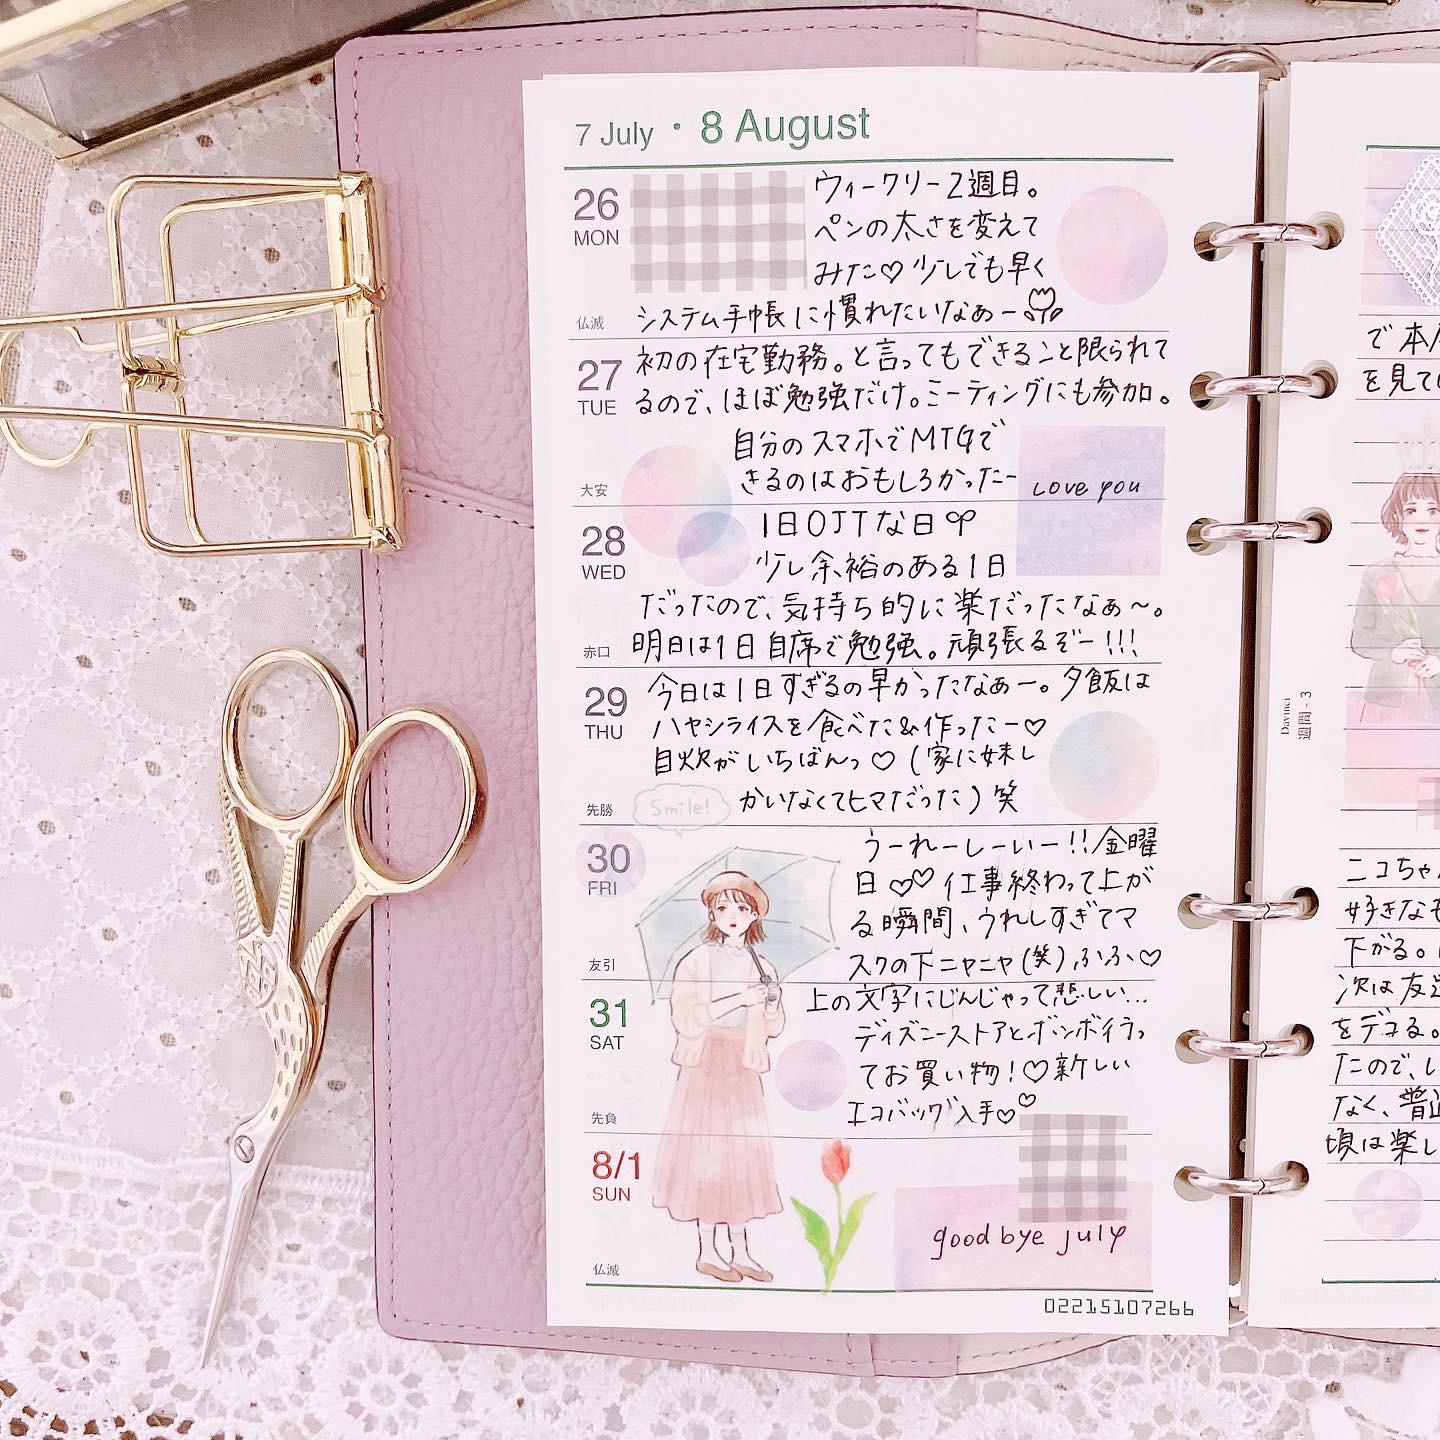 7 July・8 August
26
MON
仏滅
ウィークリー2週目。
ペンの太さを変えて
みた♡少しでも早く
システム手帳に慣れたいなぁー
27
TUE
大安
初の在宅勤務。と言ってもできること限られて
るので、ほぼ勉強だけ。ミーティングにも参加。
自分のスマホでMTGで
きるのはおもしろかったー
Love you
28
WED
赤口
1日OJTな日
少し余裕のある1日
だったので、気持ち的に楽だったなぁ〜。
明日は1日自席で勉強。頑張るぞー!!!
29
THU
先勝
今日は1日すぎるの早かったなぁー。夕飯は
ハヤシライスを食べた&作ったー♡
自炊がいちばんっ♡(家に妹し
かいなくてヒマだった)笑
Smile!
30
FRI
友引
うーれーしーいー!!金曜
日♡♡仕事終わって上が
る瞬間、うれしすぎてマ
スクの下ニヤニヤ(笑)ふふ♡
31
SAT
先負
上の文字にじんじゃって悲しい…
ディズニーストアとボンボイ行っ
てお買い物!♡新しい
エコバッグ入手♡♡
8/1
SUN
仏滅
good bye july
02215107266
Davinci
週間-3
で本
を見てい
ニコちゃん
好きなも
下がる。
次は友達
をデコる。
たので、し
なく、普
頃は楽し